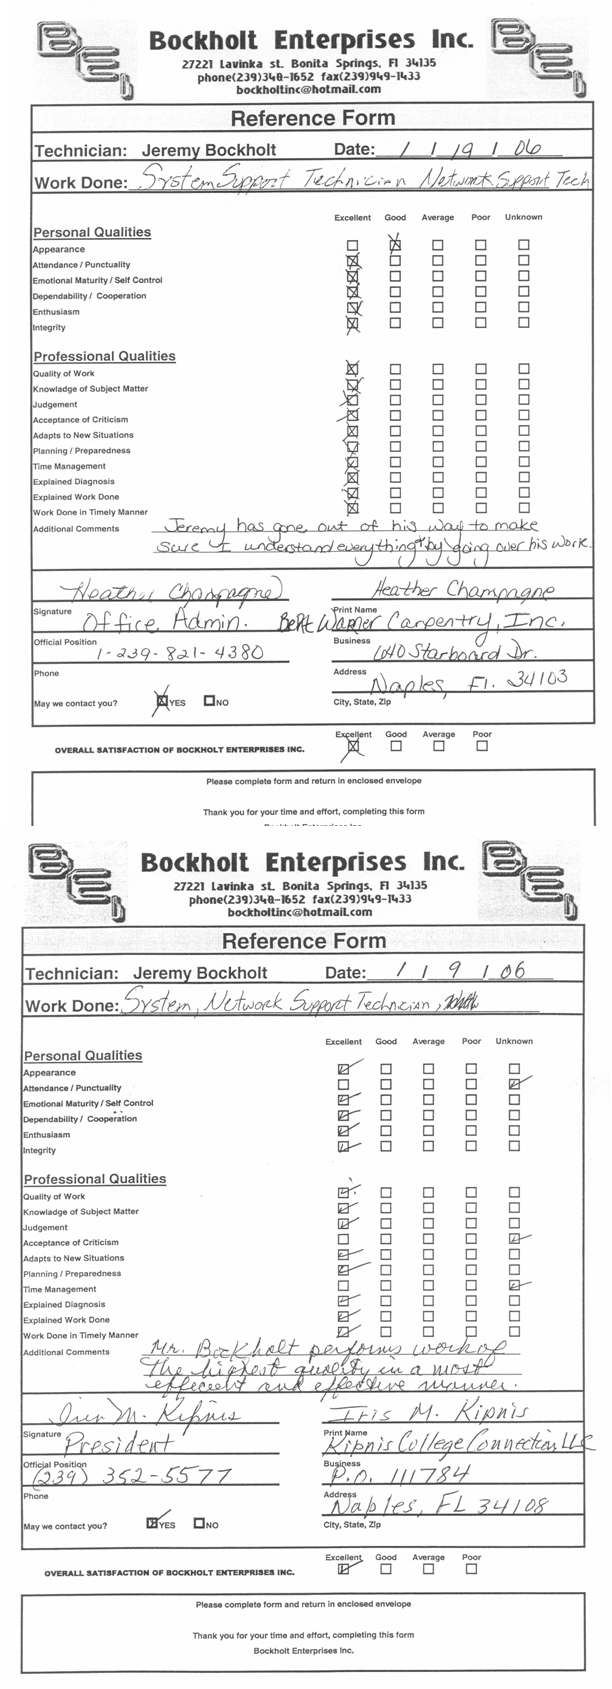 BEI
Bockholt Enterprises Inc.
BEI
27221 Lavinka st. Bonita Springs, Fl 34135
phone(239)340-1652 fax(239)949-1433
bockholtinc@hotmail.com
Reference Form
Technician: Jeremy Bockholt Date: 1 / 19 / 06
Work Done: System Support Technician Network Support Tech
Excellent Good Average Poor Unknown
Personal Qualities
Appearance
Attendance / Punctuality
Emotional Maturity / Self Control
Dependability / Cooperation
Enthusiasm
Integrity
Professional Qualities
Quality of Work
Knowladge of Subject Matter
Judgement
Acceptance of Criticism
Adapts to New Situations
Planning / Preparedness
Time Management
Explained Diagnosis
Explained Work Done
Work Done in Timely Manner
Additional Comments Jeremy has gone out of his way to make
sure I understand everything by going over his work.
Heather Champagne Heather Champagne
Signature Print Name
Office Admin. Bert Warner Carpentry, Inc.
Official Position Business
1-239-821-4380 1040 Starboard Dr.
Phone Address
Naples, Fl. 34103
May we contact you? YES NO City, State, Zip
Excellent Good Average Poor
OVERALL SATISFACTION OF BOCKHOLT ENTERPRISES INC.
Please complete form and return in enclosed envelope
Thank you for your time and effort, completing this form
Bockholt Enterprises Inc.
BEI
Bockholt Enterprises Inc.
BEI
27221 Lavinka st. Bonita Springs, Fl 34135
phone(239)340-1652 fax(239)949-1433
bockholtinc@hotmail.com
Reference Form
Technician: Jeremy Bockholt Date: 1 / 9 / 06
Work Done: System, Network Support Technician,
Excellent Good Average Poor Unknown
Personal Qualities
Appearance
Attendance / Punctuality
Emotional Maturity / Self Control
Dependability / Cooperation
Enthusiasm
Integrity
Professional Qualities
Quality of Work
Knowladge of Subject Matter
Judgement
Acceptance of Criticism
Adapts to New Situations
Planning / Preparedness
Time Management
Explained Diagnosis
Explained Work Done
Work Done in Timely Manner
Additional Comments Mr. Bockholt performs work of
the highest quality in a most
efficient and effective manner.
Iris M. Kipnis Iris M. Kipnis
Signature Print Name
President Kipnis College Connection, LLC
Official Position Business
(239) 352-5577 P.O. 111784
Phone Address
Naples, FL 34108
May we contact you? YES NO City, State, Zip
Excellent Good Average Poor
OVERALL SATISFACTION OF BOCKHOLT ENTERPRISES INC.
Please complete form and return in enclosed envelope
Thank you for your time and effort, completing this form
Bockholt Enterprises Inc.